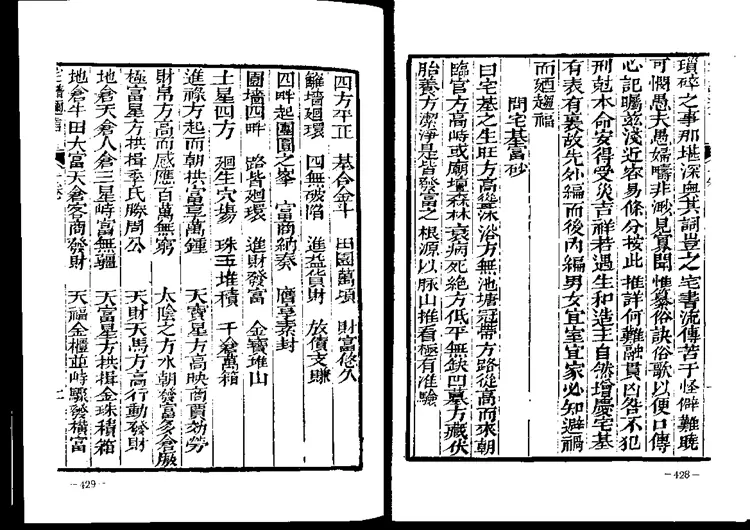 瑣碎之事那堪深奧其詞豈之宅書流傳苦于怪僻難曉
可憫愚夫愚婦疇非渺見寡聞惟纂俗訣俗歌以便口傳
心記囑茲淺近容易條分按此推詳何難融貫凶咎不犯
刑尅本命安得受災吉祥若遇生和造主自然增慶宅基
有表有裏故先外編而後內編男女宜室宜家必知避禍
而廼趨福
問宅基富砂
曰宅基之生旺方高從沐浴方無池塘冠帶方路從高而來朝
臨官方高峙或廟壇森林衰病死絶方低平無缺凹墓方藏伏
胎養方潔淨是皆發富之根源以脉山推看極有准驗
-428-
四方平正 基合金斗 田園萬頃 財富悠久
羅墻廻環 四無破陷 進益貨財 放債支賺
四畔起團圓之峯 富商納奏 廣享素封
圍墻四畔 路皆廻環 進財發富 金寶堆山
土星四方 廻生穴場 珠玉堆積 千倉萬箱
進祿方起而朝拱富享萬鍾 天寶星方高映商賈効勞
財帛方高而感應百萬無窮 太陰之方水朝發富多倉廒
極富星方拱揖季氏勝周公 天財天馬方高行動發財
地倉天倉人倉三星峙富無疆 天富星方拱揖金珠積箱
地倉牛田大富天倉客商發財 天福金櫃並峙驟發橫富
-429-